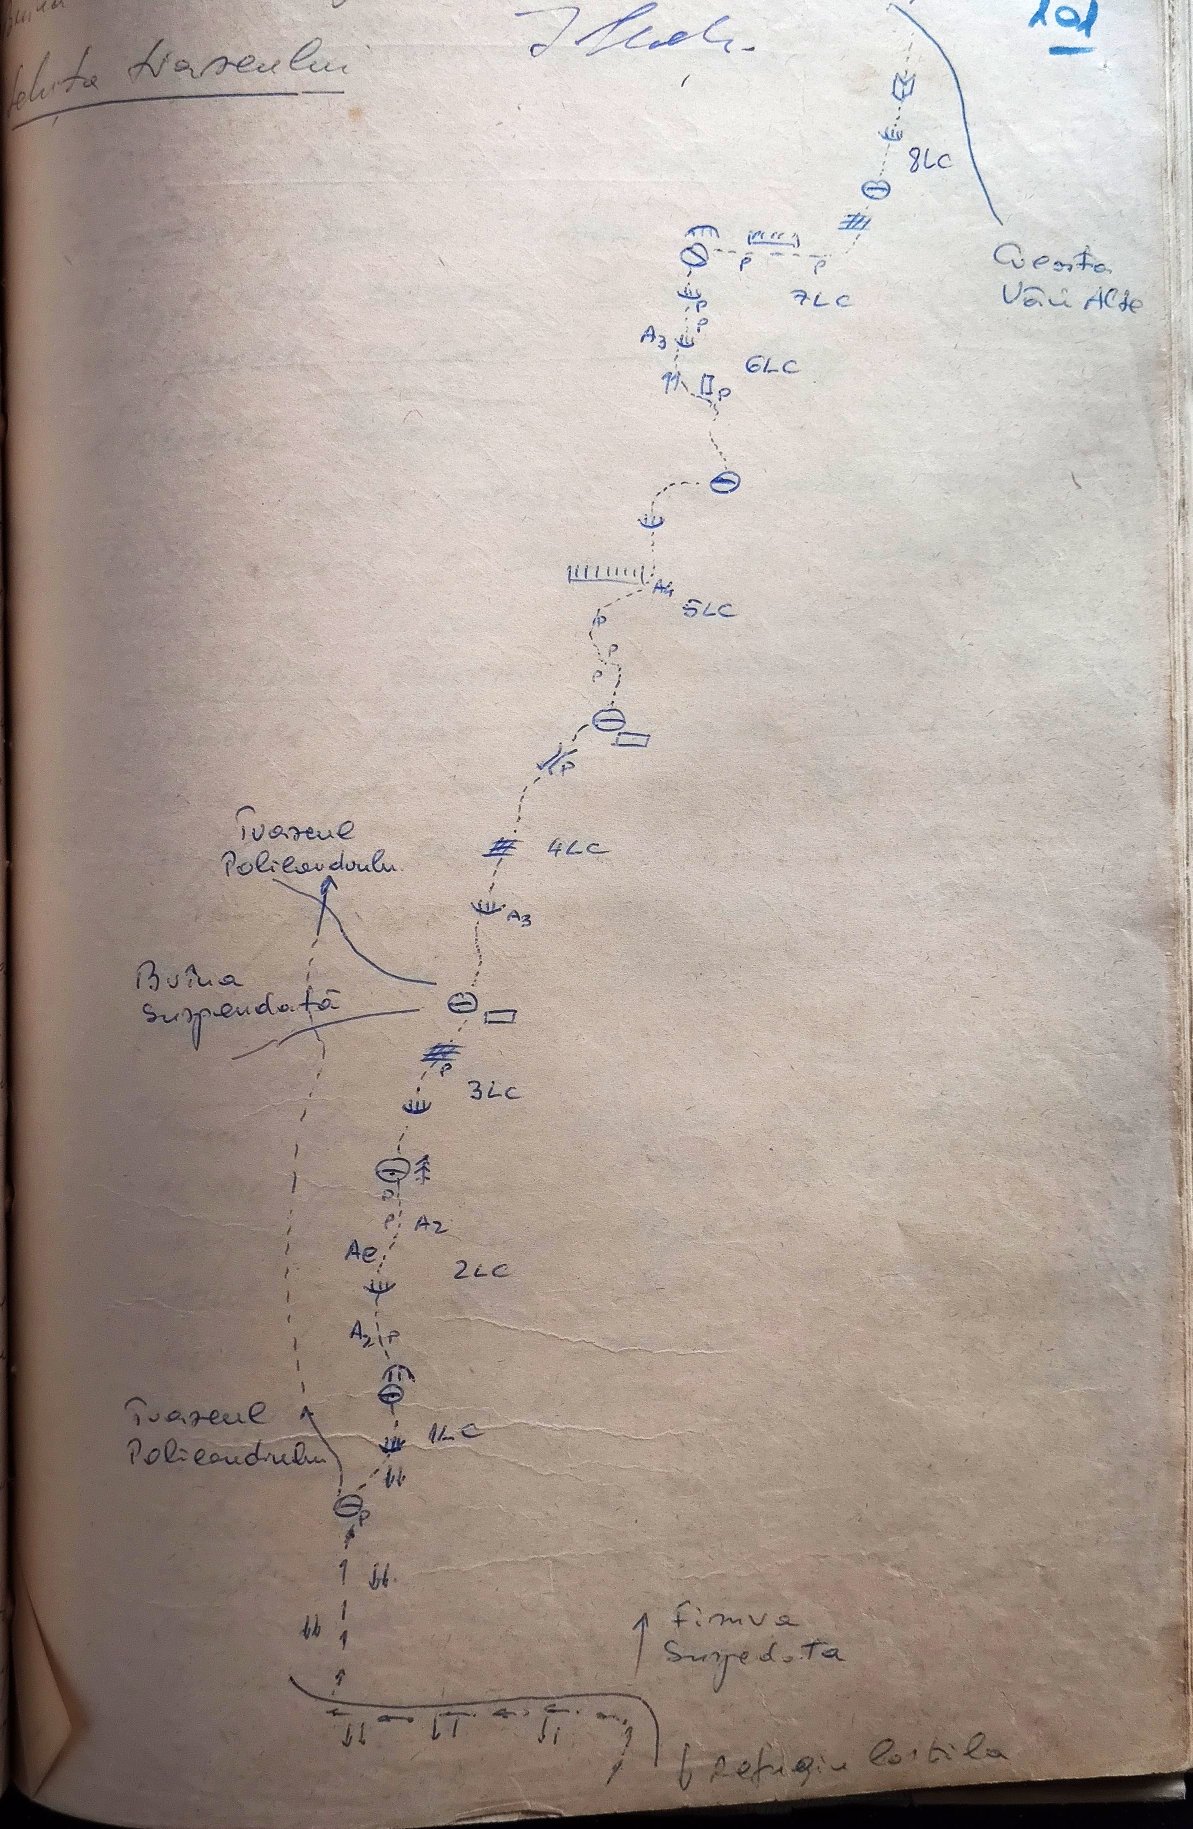 Schița traseului
101
8LC
Creasta
Văii Albe
7LC
P
P
P
P
A3
6LC
P
A4
5LC
P
P
P
P
4LC
A3
Traseul
Policandrului
Brîna
Suspendată
P
3LC
P
P
A2
Ae
2LC
A2
P
1LC
Traseul
Policandrului
P
Firma
Suspedata
Refugiu Costila